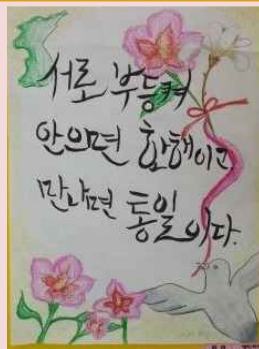 서로 부등켜
안으면 화해이고
만나면 통일이다.